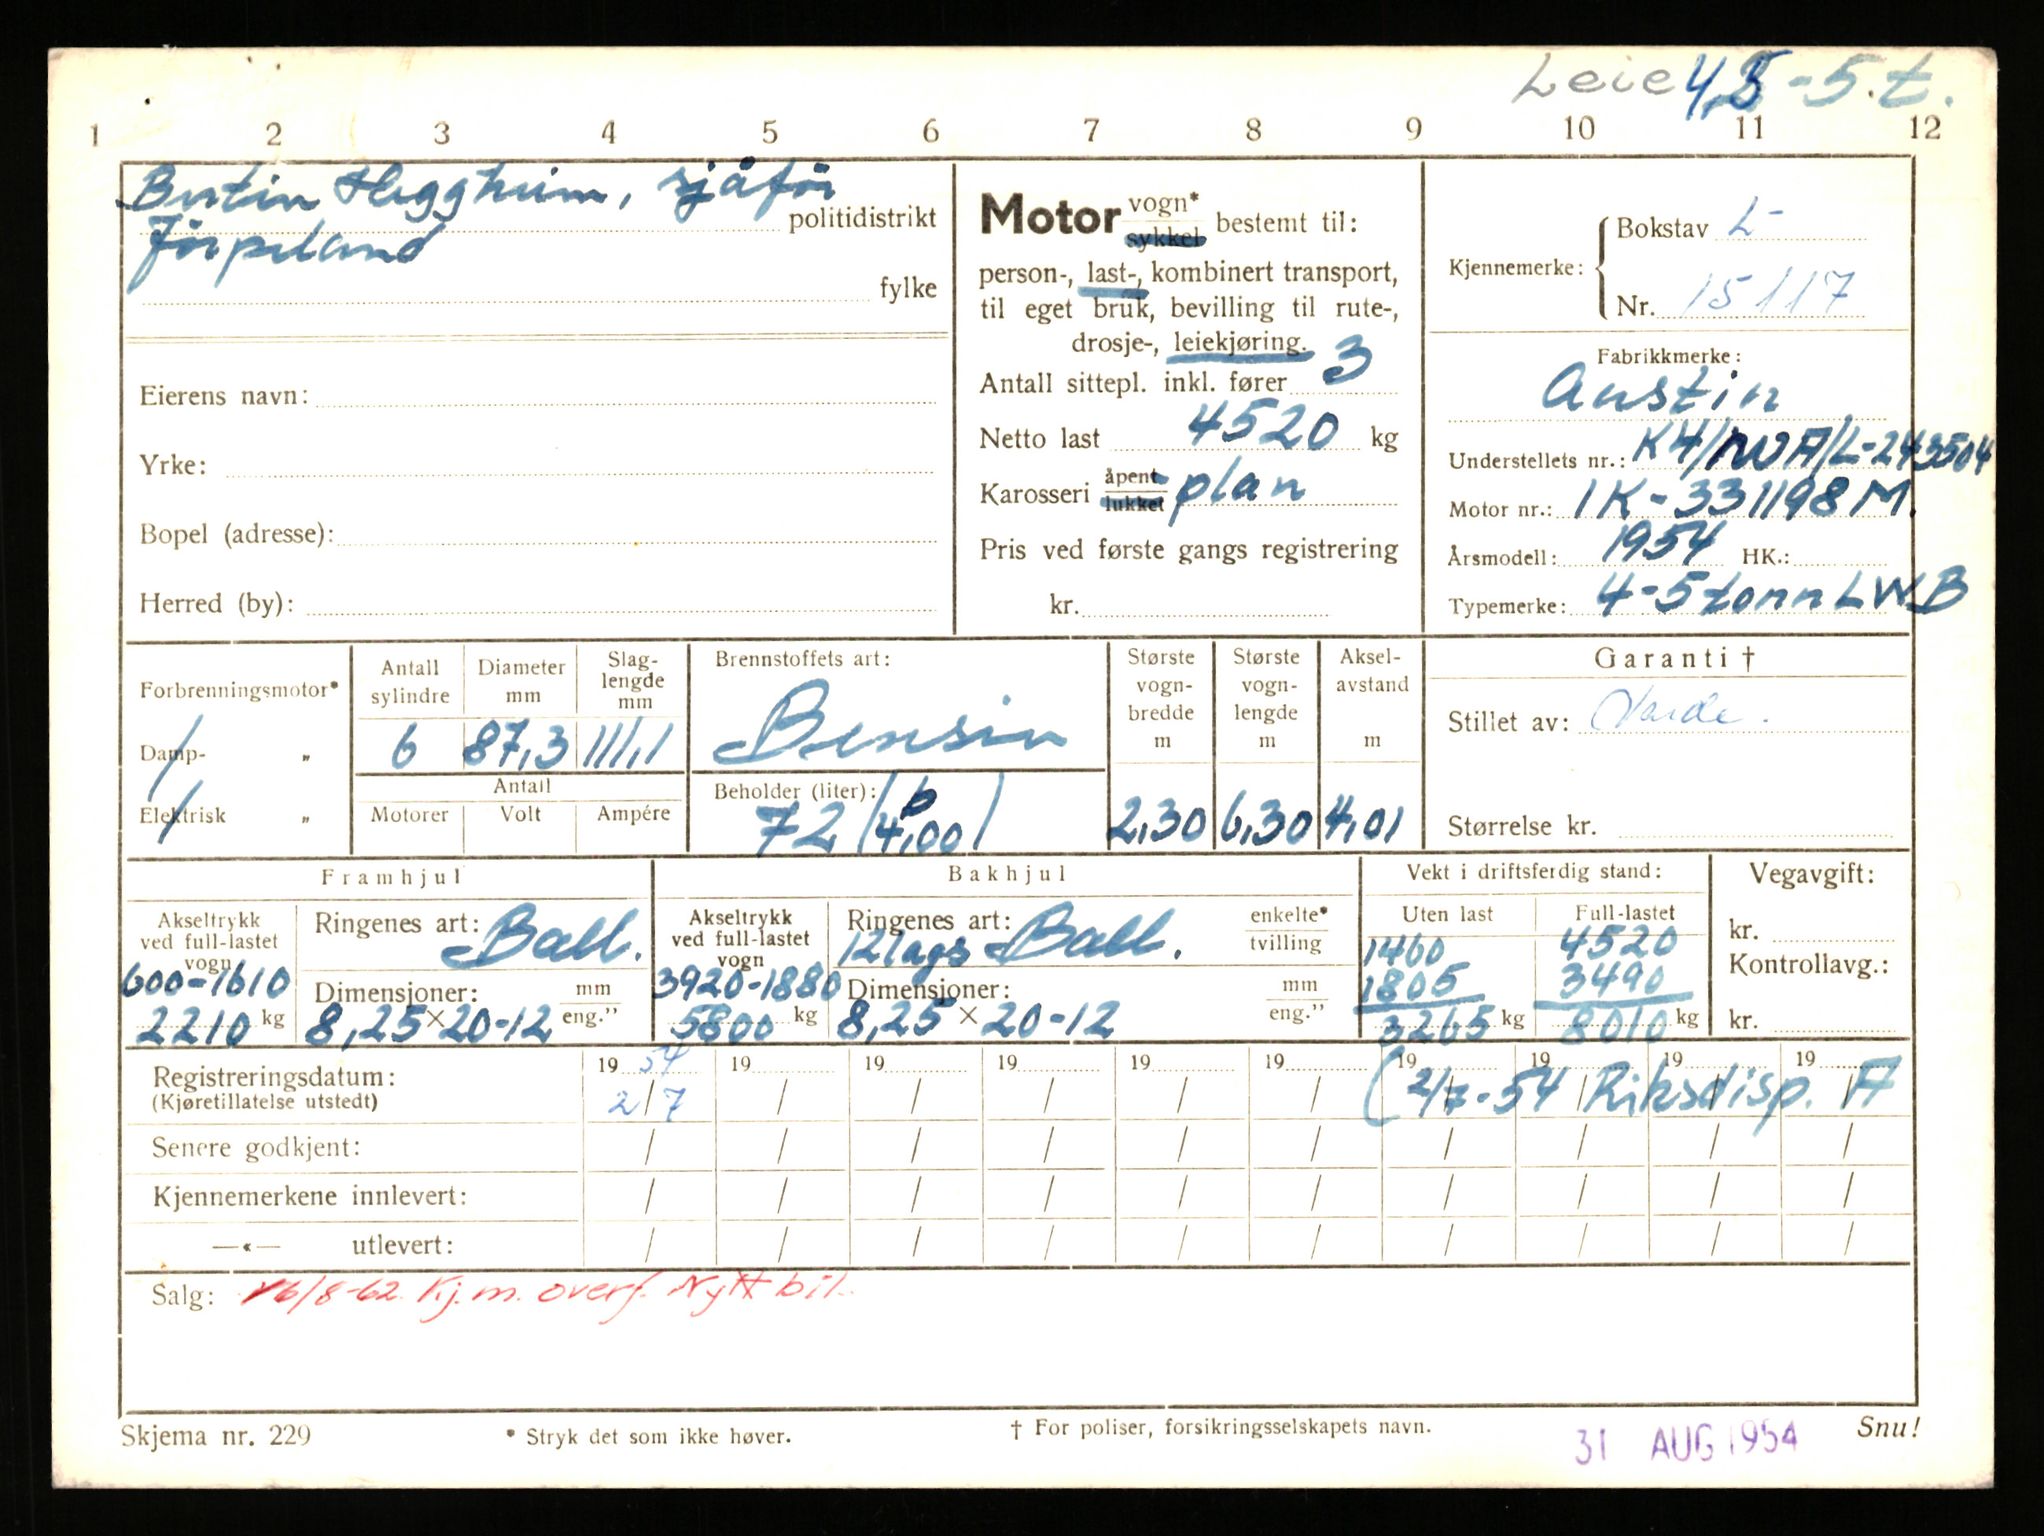 Leie 4,5-5.t.
1 2 3 4 5 6 7 8 9 10 11 12
Bertin Heggheim, sjåfør
politidistrikt
Jørpeland
fylke
Eierens navn:
Yrke:
Bopel (adresse):
Herred (by):
Motor vogn* sykkel bestemt til:
person-, last-, kombinert transport,
til eget bruk, bevilling til rute-,
drosje-, leiekjøring.
Antall sittepl. inkl. fører 3
Netto last 4520 kg
Karosseri åpent lukket plan
Pris ved første gangs registrering
kr.
Kjennemerke: Bokstav L-
Nr. 15117
Fabrikkmerke:
Austin
Understellets nr.: K4/NVA/L-243504
Motor nr.: 1K-331198M.
Årsmodell: 1954 HK.:
Typemerke: 4-5 tonn LWB
Forbrenningsmotor*
Damp- „
Elektrisk „
Antall sylindre 6
Diameter mm 87,3
Slag-lengde mm 111,1
Antall
Motorer Volt Ampére
Brennstoffets art:
Bensin
Beholder (liter):
72 (b 4,00)
Største vogn-bredde m 2,30
Største vogn-lengde m 6,30
Aksel-avstand m 4,01
Garanti †
Stillet av: Varde.
Størrelse kr.
Framhjul
Akseltrykk ved full-lastet vogn
600-1610
2210 kg
Ringenes art: Ball.
Dimensjoner: mm eng."
8,25 x 20-12
Bakhjul
Akseltrykk ved full-lastet vogn
3920-1880
5800 kg
Ringenes art: enkelte* tvilling
12 lags Ball.
Dimensjoner: mm eng."
8,25 x 20-12
Vekt i driftsferdig stand:
Uten last Full-lastet
1460 4520
1805 3490
3265 kg 8010 kg
Vegavgift:
kr.
Kontrollavg.:
kr.
Registreringsdatum: 19 54 19 19 19 19 19 19 19 19 19
(Kjøretillatelse utstedt) 2/7 / / / / / (2/7-54 Riksdisp. A
Senere godkjent: / / / / / / / / / /
Kjennemerkene innlevert: / / / / / / / / / /
—«— utlevert: / / / / / / / / / /
Salg: 16/8-62. Kj.m. overf. Nytt bil.
Skjema nr. 229
* Stryk det som ikke høver.
† For poliser, forsikringsselskapets navn.
31 AUG 1954
Snu!